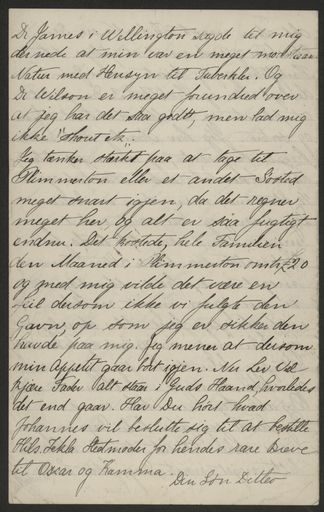 Dr James i Wellington sagde til mig
dernede at min var en meget modstaar
Natur med Hensyn til Tuberkler. Og
Dr Wilson er meget forundred over
at jeg har det saa godt, men bad mig
ikke "shout etc."
Jeg tænker stærkt paa at tage til
Plimmerton eller et andet Sosted
meget snart igjen, da det regner
meget her, og alt er saa fugtigt
endnu. Det kostede, hele Familien
den Maaned i Plimmerton omtr £20
og med mig vilde det være en
dersom ikke vi fulgte den
op som jeg er sikker den
havde paa mig. Jeg mener at dersom
min Appetit gaar bort igjen. Nu Lev Vel
kjære Fader alt staar i Guds Haand, hvorledes
det end gaar. Har Du hørt hvad
Johannes vil beslutte sig til at bestille
Hils Thekla Stedmoder for hendes rare Breve
til Oscar og Kamma. Din Søn Ditlev